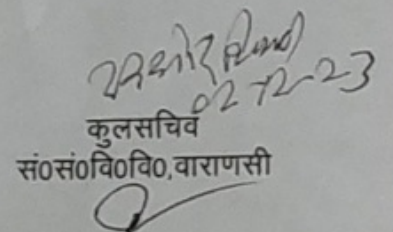 02-12-23
कुलसचिव
सं०सं०वि०वि०,वाराणसी